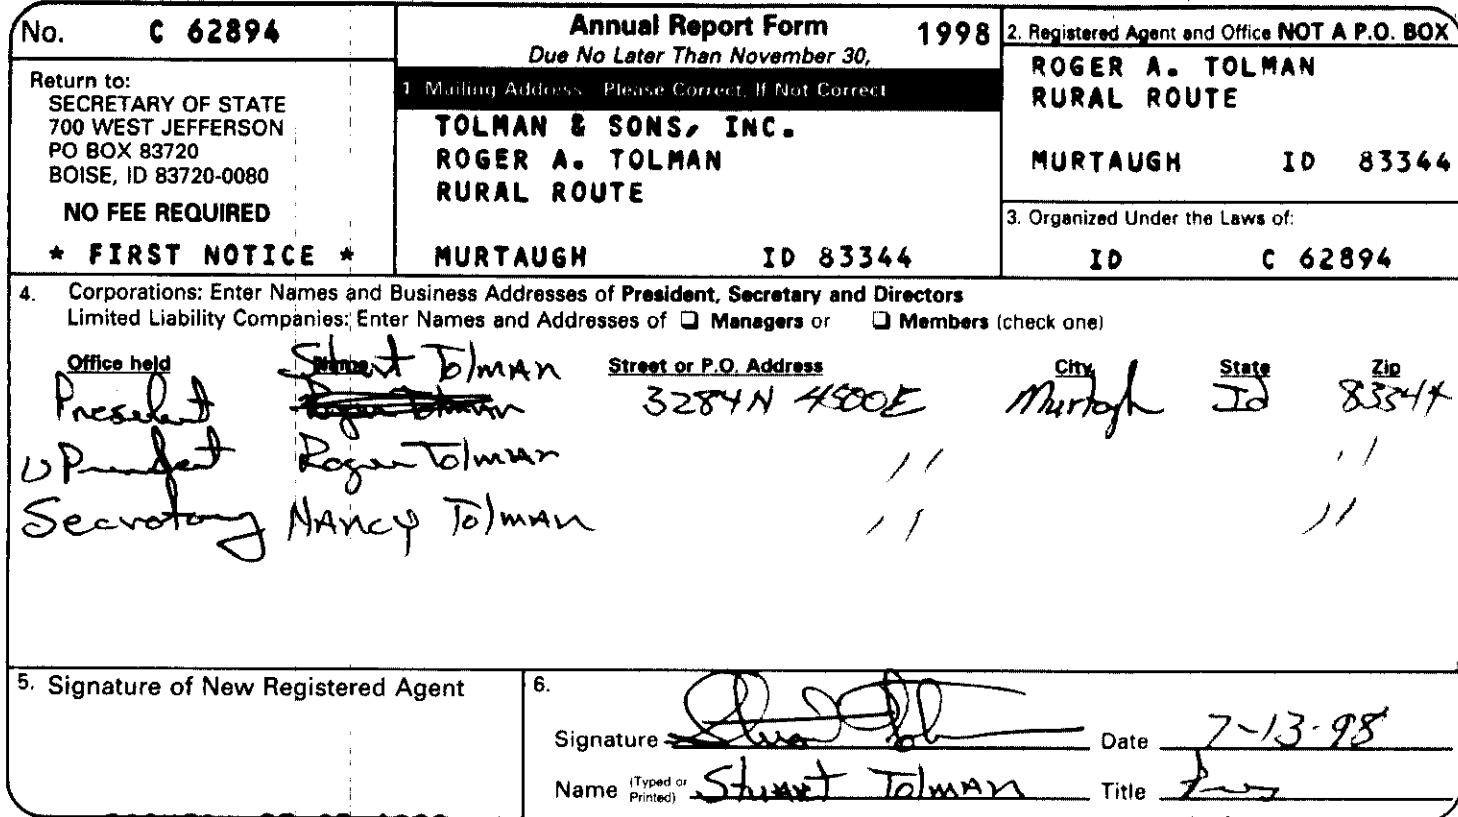 No. C 62894
Return to:
SECRETARY OF STATE
700 WEST JEFFERSON
PO BOX 83720
BOISE, ID 83720-0080
NO FEE REQUIRED
* FIRST NOTICE *
Annual Report Form 1998
Due No Later Than November 30,
1 Mailing Address Please Correct, If Not Correct
TOLMAN & SONS, INC.
ROGER A. TOLMAN
RURAL ROUTE
MURTAUGH ID 83344
2. Registered Agent and Office NOT A P.O. BOX
ROGER A. TOLMAN
RURAL ROUTE
MURTAUGH ID 83344
3. Organized Under the Laws of:
ID C 62894
4. Corporations: Enter Names and Business Addresses of President, Secretary and Directors
Limited Liability Companies: Enter Names and Addresses of ❑ Managers or ❑ Members (check one)
Office held Name Street or P.O. Address City State Zip
Stuart Tolman
President Roger Tolman 3284N 4500E Murtagh Id 83344
V President Roger Tolman " "
Secretary Nancy Tolman " "
5. Signature of New Registered Agent
6.
Signature Stuart Tolman Date 7-13-98
Name (Typed or Printed) Stuart Tolman Title Pres